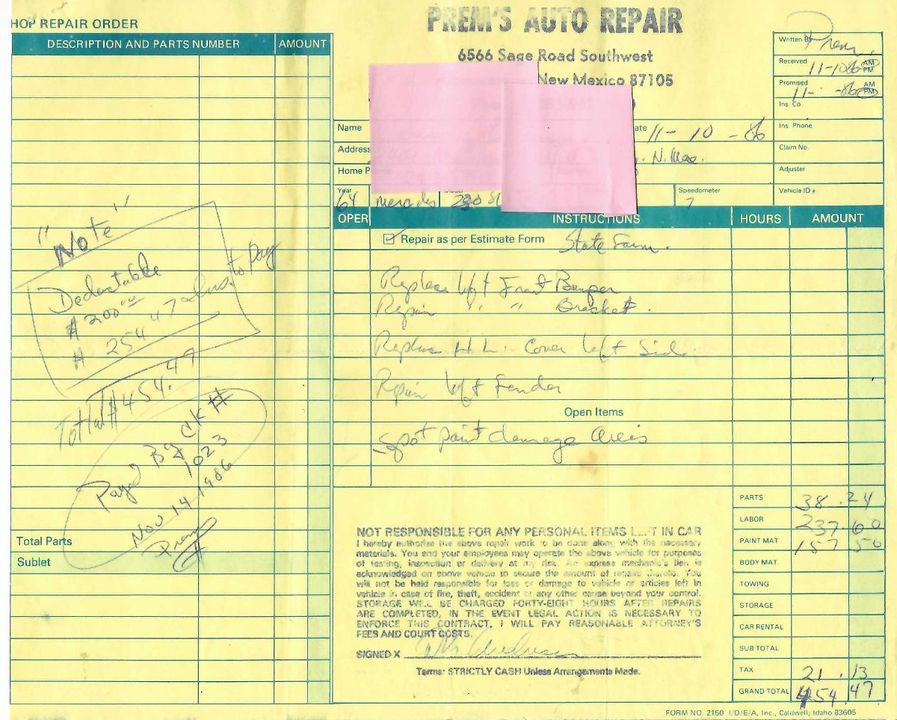 SHOP REPAIR ORDER
PREM'S AUTO REPAIR
6566 Sage Road Southwest
New Mexico 87105
DESCRIPTION AND PARTS NUMBER AMOUNT
Written By Prem
Received 11-10-86 AM PM
Promised 11- -86 AM PM
Ins Co
Name
11-10-86
Ins. Phone
Address
N. Mex.
Claim No.
Home P
Adjuster
Year
Speedometer
Vehicle ID #
64 Mercedes 230 SL
?
OPER INSTRUCTIONS HOURS AMOUNT
☑ Repair as per Estimate Form State Farm.
Replace left Front Bumper
Repair " " Bracket.
Replace H.L. Cover left Side.
Repair left Fender
Open Items
Spot paint damage Areis
"Note"
Deductable
$200.00
# 254.47 to Pay
Tottal # 454.47
Payed By CK #
1023
Nov 14 1986
Prem
Total Parts
Sublet
NOT RESPONSIBLE FOR ANY PERSONAL ITEMS LEFT IN CAR
I hereby authorise the above repair work to be done along with the necessary
materials. You and your employees may operate the above vehicle for purposes
of testing, inspection or delivery at my risk. An express mechanic's lien is
acknowledged on above vehicle to secure the amount of repairs thereto. You
will not be held responsible for loss or damage to vehicle or articles left in
vehicle in case of fire, theft, accident or any other cause beyond your control.
STORAGE WILL BE CHARGED FORTY-EIGHT HOURS AFTER REPAIRS
ARE COMPLETED, IN THE EVENT LEGAL ACTION IS NECESSARY TO
ENFORCE THIS CONTRACT, I WILL PAY REASONABLE ATTORNEY'S
FEES AND COURT COSTS.
SIGNED X
Terms: STRICTLY CASH Unless Arrangements Made.
PARTS 38.24
LABOR 237.60
PAINT MAT 157.50
BODY MAT.
TOWING
STORAGE
CAR RENTAL
SUB TOTAL
TAX 21.13
GRAND TOTAL 454.47
FORM NO. 2150 I/D/E/A, Inc., Caldwell, Idaho 83605